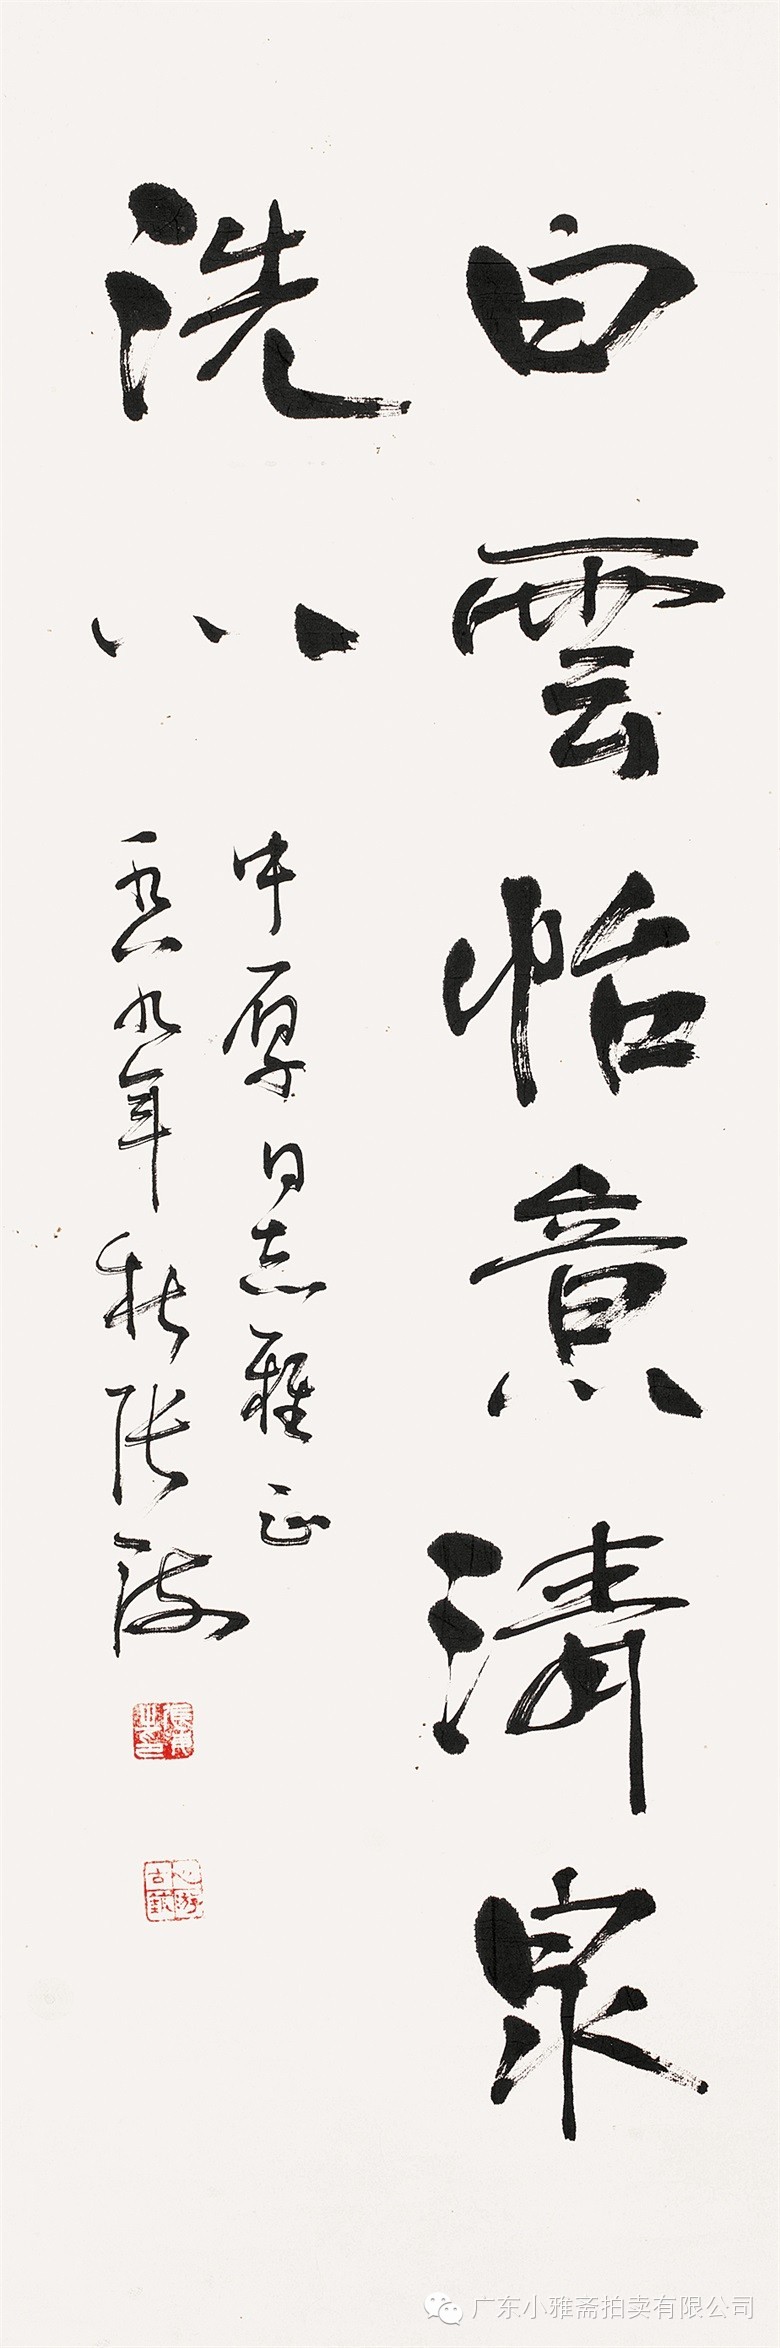 白雲怡意清泉
洗心
中厚同志雅正
一九八九年秋张
广东小雅斋拍卖有限公司